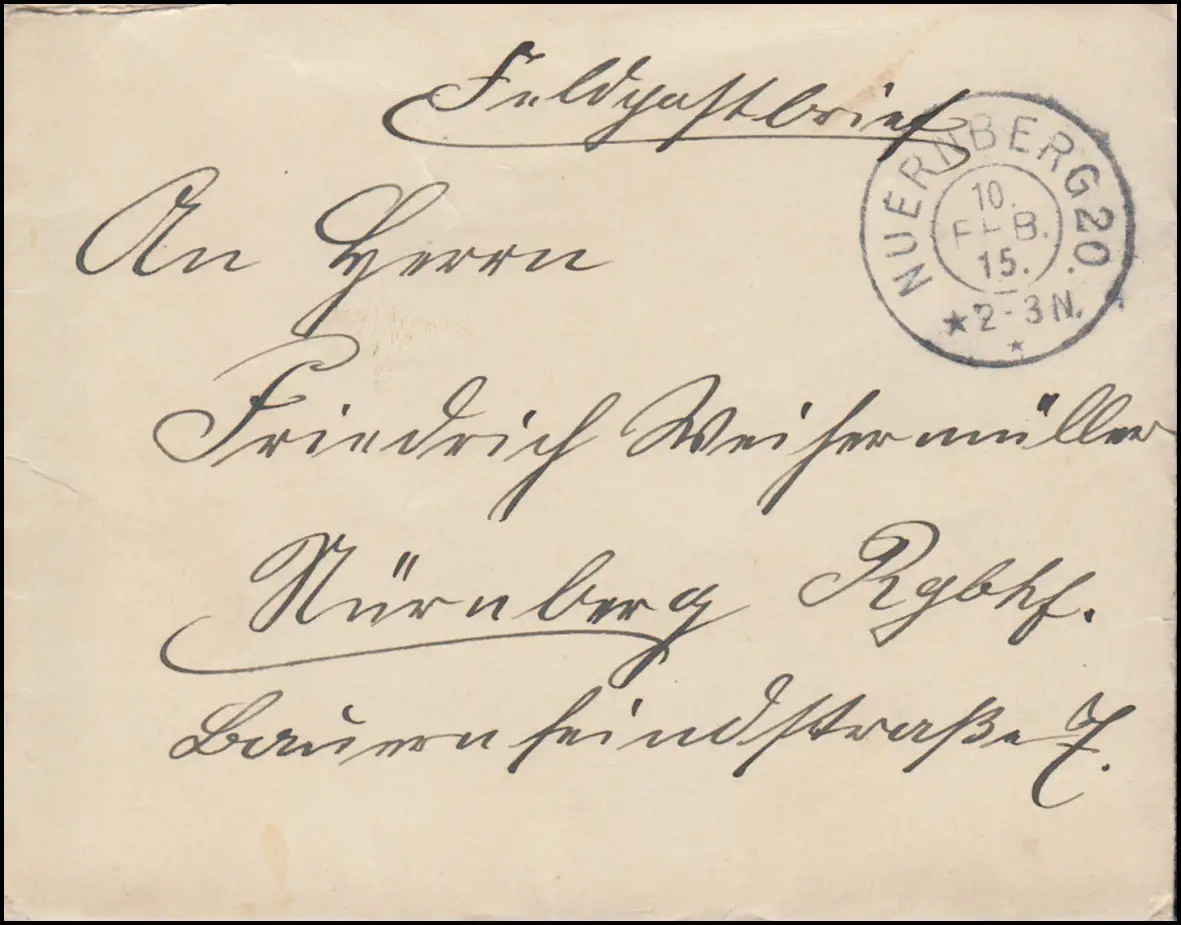 Feldpostbrief
NUERNBERG 20.
10.
FEB.
15.
★ 2-3 N.
An Herrn
Friedrich Weihermüller
Nürnberg Rgbhf.
Bauernfeindstraße 7.